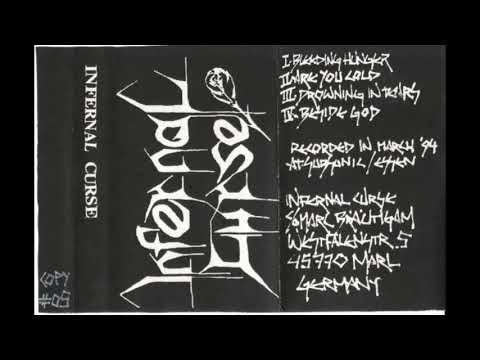 INFERNAL CURSE
Infernal
Curse
I. BLEEDING HUNGER
II. ARE YOU COLD
III. DROWNING IN TEARS
IV. BESIDE GOD
RECORDED IN MARCH '94
AT SUBSONIC / ESSEN
INFERNAL CURSE
C/O MARC BRÄUTIGAM
WESTFALENSTR. 5
45770 MARL
GERMANY